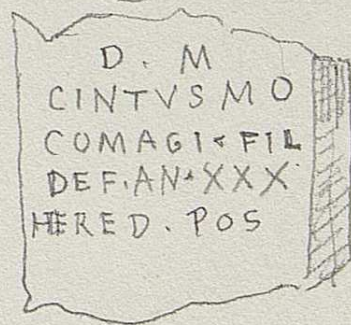 D. M
CINTVSMO
COMAGI‹FIL
DEF.AN▴XXX
HERED. POS